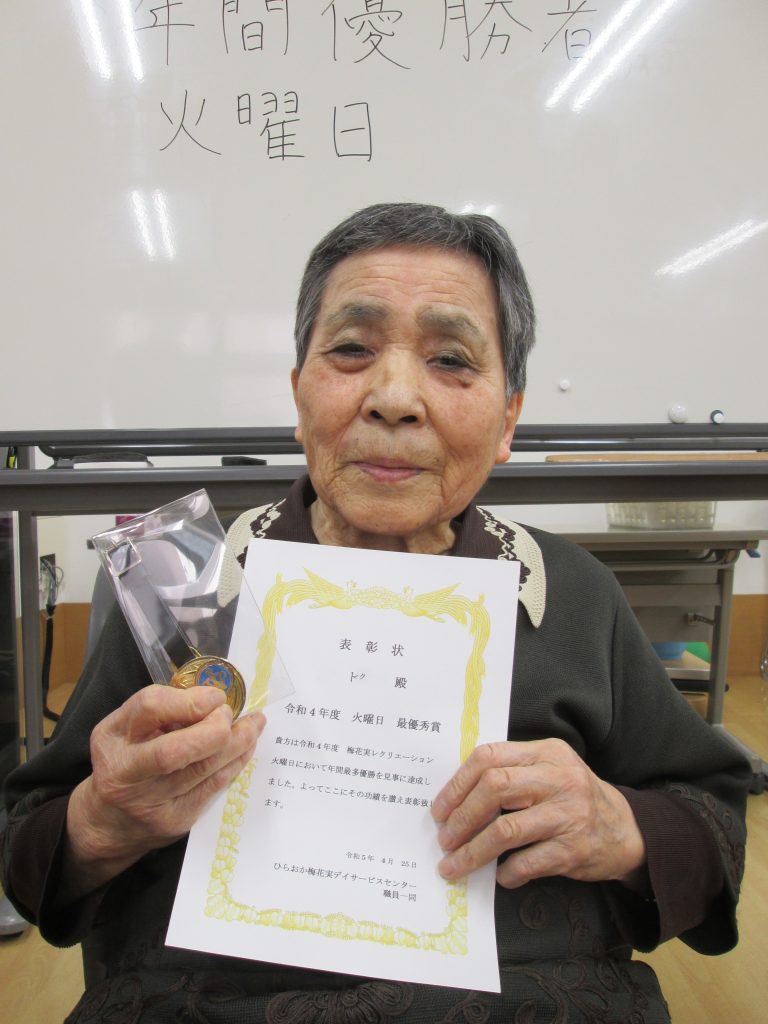 年間優勝者
火曜日
表彰状
トク 殿
令和4年度 火曜日 最優秀賞
貴方は令和4年度 梅花実レクリエーション
火曜日において年間最多優勝を見事に達成し
ました。よってここにその功績を讃え表彰致し
ます。
令和5年 4月 25日
ひらおか梅花実デイサービスセンター
職員一同